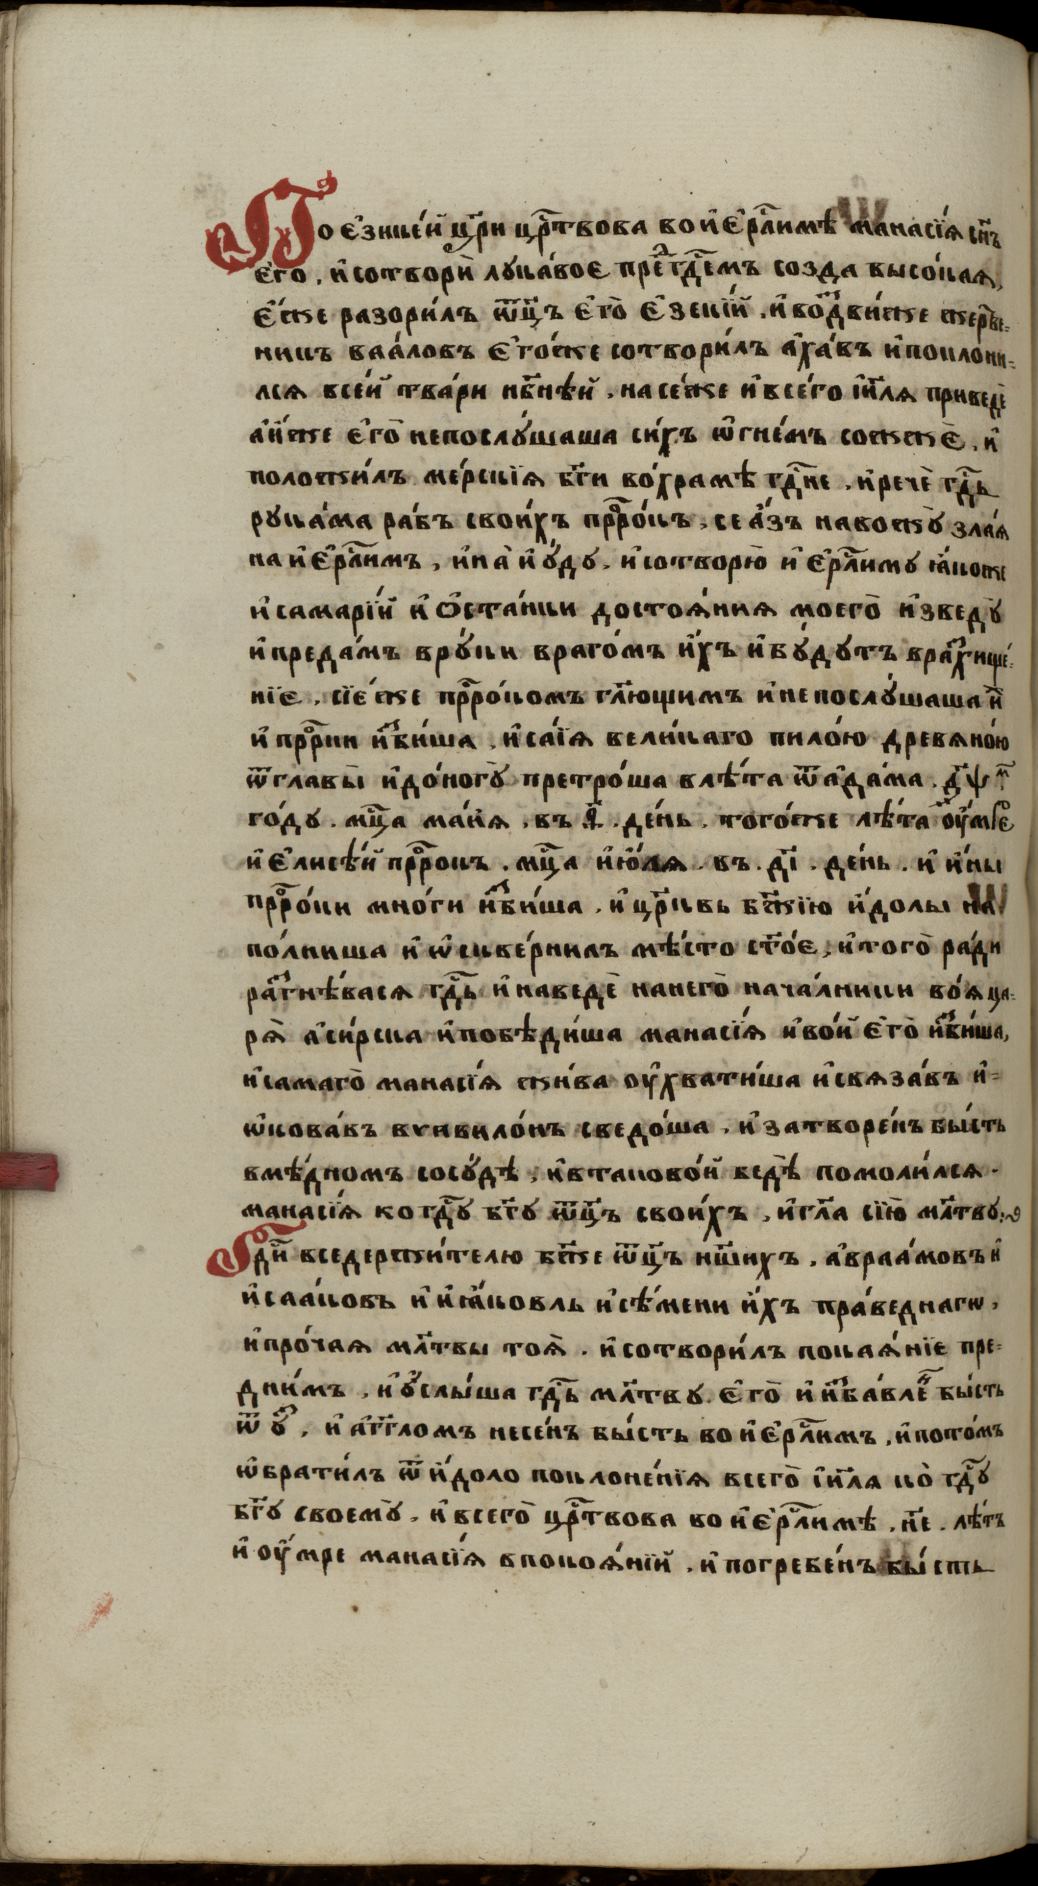 По є҆зикеи́ цр҃и црⷭ҇твова вои҆є҆рⷭ҇лимѣ манасїѧ сн҃ъ
є҆го̀, и҆сотворѝ лꙋка́воє преⷣ гдⷭ҇емъ созда высо́каѧ,
є҆́же разори́лъ ѿц҃ъ є҆го̀ є҆зекі́й. и҆воⷥдви́же жерт̾ве=
никъ ваа́ловъ є҆го́же сотвори́лъ а҆ха́въ и҆поклони=
лсѧ все́й тва́ри нбⷭ҇нѣй. насе́же и҆все́го і҆и҃лѧ приведѐ
а҆и́же є҆го̀ непослꙋ́шаша си́хъ ѻ҆гне́мъ сожжѐ, и҆
положи́лъ ме́рскїѧ бг҃и во́храмѣ гдⷭ҇не. и҆речѐ гдⷭ҇ь
рꙋка́ма ра́бъ свои́хъ прⷪ҇ро́къ, се а҆́зъ навожꙋ̀ зла́ѧ
на и҆є҆рⷭ҇лимъ, и҆на̀ и҆ꙋ́дꙋ, и҆сотворю̀ и҆є҆рⷭ҇лимꙋ ꙗ҆́коже
и҆самарі́й и҆ѻ҆ста́нки досто́ѧниѧ моегѡ̀ и҆зведꙋ̀
и҆преда́мъ врꙋ́ки враго́мъ и҆́хъ и҆бꙋ́дꙋтъ враⷥхище́=
нїе. сїе́же прⷪ҇ро́комъ гл҃ющимъ и҆непослꙋ́шаша и҆ⷯ
и҆ прⷪ҇рки и҆ⷥби́ша, и҆са́їѧ вели́каго пило́ю древѧно́ю
ѿ главы̀ и҆до́ногꙋ̀ претро́ша влѣ́та ѿ а҆да́ма
го́дꙋ. мцⷭ҇а ма́їѧ. въ ҂ѳ҃. де́нь. того́же лѣ́та оу҆́мре
и҆є҆лисѣ́й прⷪ҇рокъ. мцⷭ҇а и҆ю҆лѧ. въ. д҃і. де́нь. и҆ и҆́ны
прⷪ҇ро́ки мно́ги и҆ⷥби́ша, и҆ црⷦ҇квь бж҃їю и҆́долы на
по́лниша и҆ ѡ҆скве́рнилъ мѣ́сто ст҃о́є, и҆того̀ ра́ди
раⷥгнѣ́васѧ гдⷭ҇ь и҆наведѐ нанего̀ нача́лники во́ѧ ца=
рѧ̀ а҆си́рска и҆побѣди́ша манасі́ѧ и҆во́й є҆го̀ и҆ⷥби́ша,
и҆самаго̀ манасі́ѧ жи́ва оу҆хвати́ша и҆свѧза́въ и҆=
ѡ҆кова́въ вᲂвило́нъ сведо́ша, и҆затворе́нъ бы́сть
вмѣ́дномъ сосꙋ́дѣ, и҆втаково́й бедѣ̀ помоли́лсѧ.
манасі́ѧ ко гдⷭ҇ꙋ бг҃ꙋ ѿц҃ъ свои́хъ, и҆гл҃а сїю̀ мл҃твꙋ:
Гдⷭ҇и вседержи́телю бж҃е ѿц҃ъ нш҃ихъ, а҆враа́мовъ и҆
и҆саа́ковъ и҆и҆ꙗ́ковль и҆сѣ́мени и҆́хъ пра́веднагѡ,
и҆про́чаѧ мл҃твы тоѧ̀. и҆сотвори́лъ покаѧ́нїе пре=
дни́мъ, и҆ꙋ҆слы́ша гдⷭ҇ь мл҃твꙋ є҆го̀ и҆ и҆ⷥба́вле́нъ бы́сть
ѿ ꙋ҆́ⷥ, и҆ а҆́гг҃ломъ несе́нъ бы́сть во и҆є҆рⷭ҇лимъ, и҆пото́мъ
ѡ҆брати́лъ ѿ и҆́доло поклоне́нїѧ всего̀ і҆и҃лѧ ко̀ гдⷭ҇ꙋ
бг҃ꙋ своемꙋ̀, и҆всего̀ црⷭ҇твова во и҆є҆рⷭ҇лимѣ, н҃е. лѣ́тъ
и҆ оу҆́мре манасі́ѧ впокоѧ́нїй, и҆погребе́нъ бы́сть